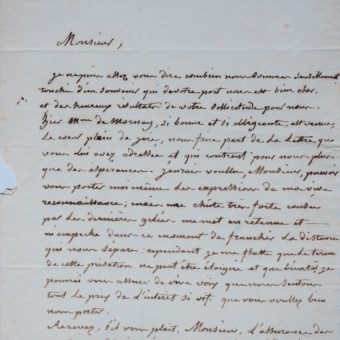 Monsieur,
je ne puis assez vous dire combien nous sommes sensiblement
touché d'un souvenir qui de votre part nous est bien cher
et des heureux résultats de votre sollicitude pour nous.
Hier Mme de Mornay, si bonne et si obligeante, est venue,
le cœur plein de joie, nous faire part de la lettre que
vous lui avez adressée et qui contient pour nous plus
que des espérances. j'aurais voulu, Monsieur, pouvoir
vous porter moi même les expressions de ma vive
reconnaissance, mais une chute très forte causée
par les dernières gelées me met en retenue et
m'empêche dans ce moment de franchir la distance
qui nous sépare, cependant je me flatte que le terme
de cette privation ne peut être éloigné et que bientôt je
pourrai vous assurer de vive voix que nous sentons
tout le prix de l'intérêt si vif, que vous voulez bien
nous porter.
Recevez, s'il vous plait, Monsieur, l'assurance des